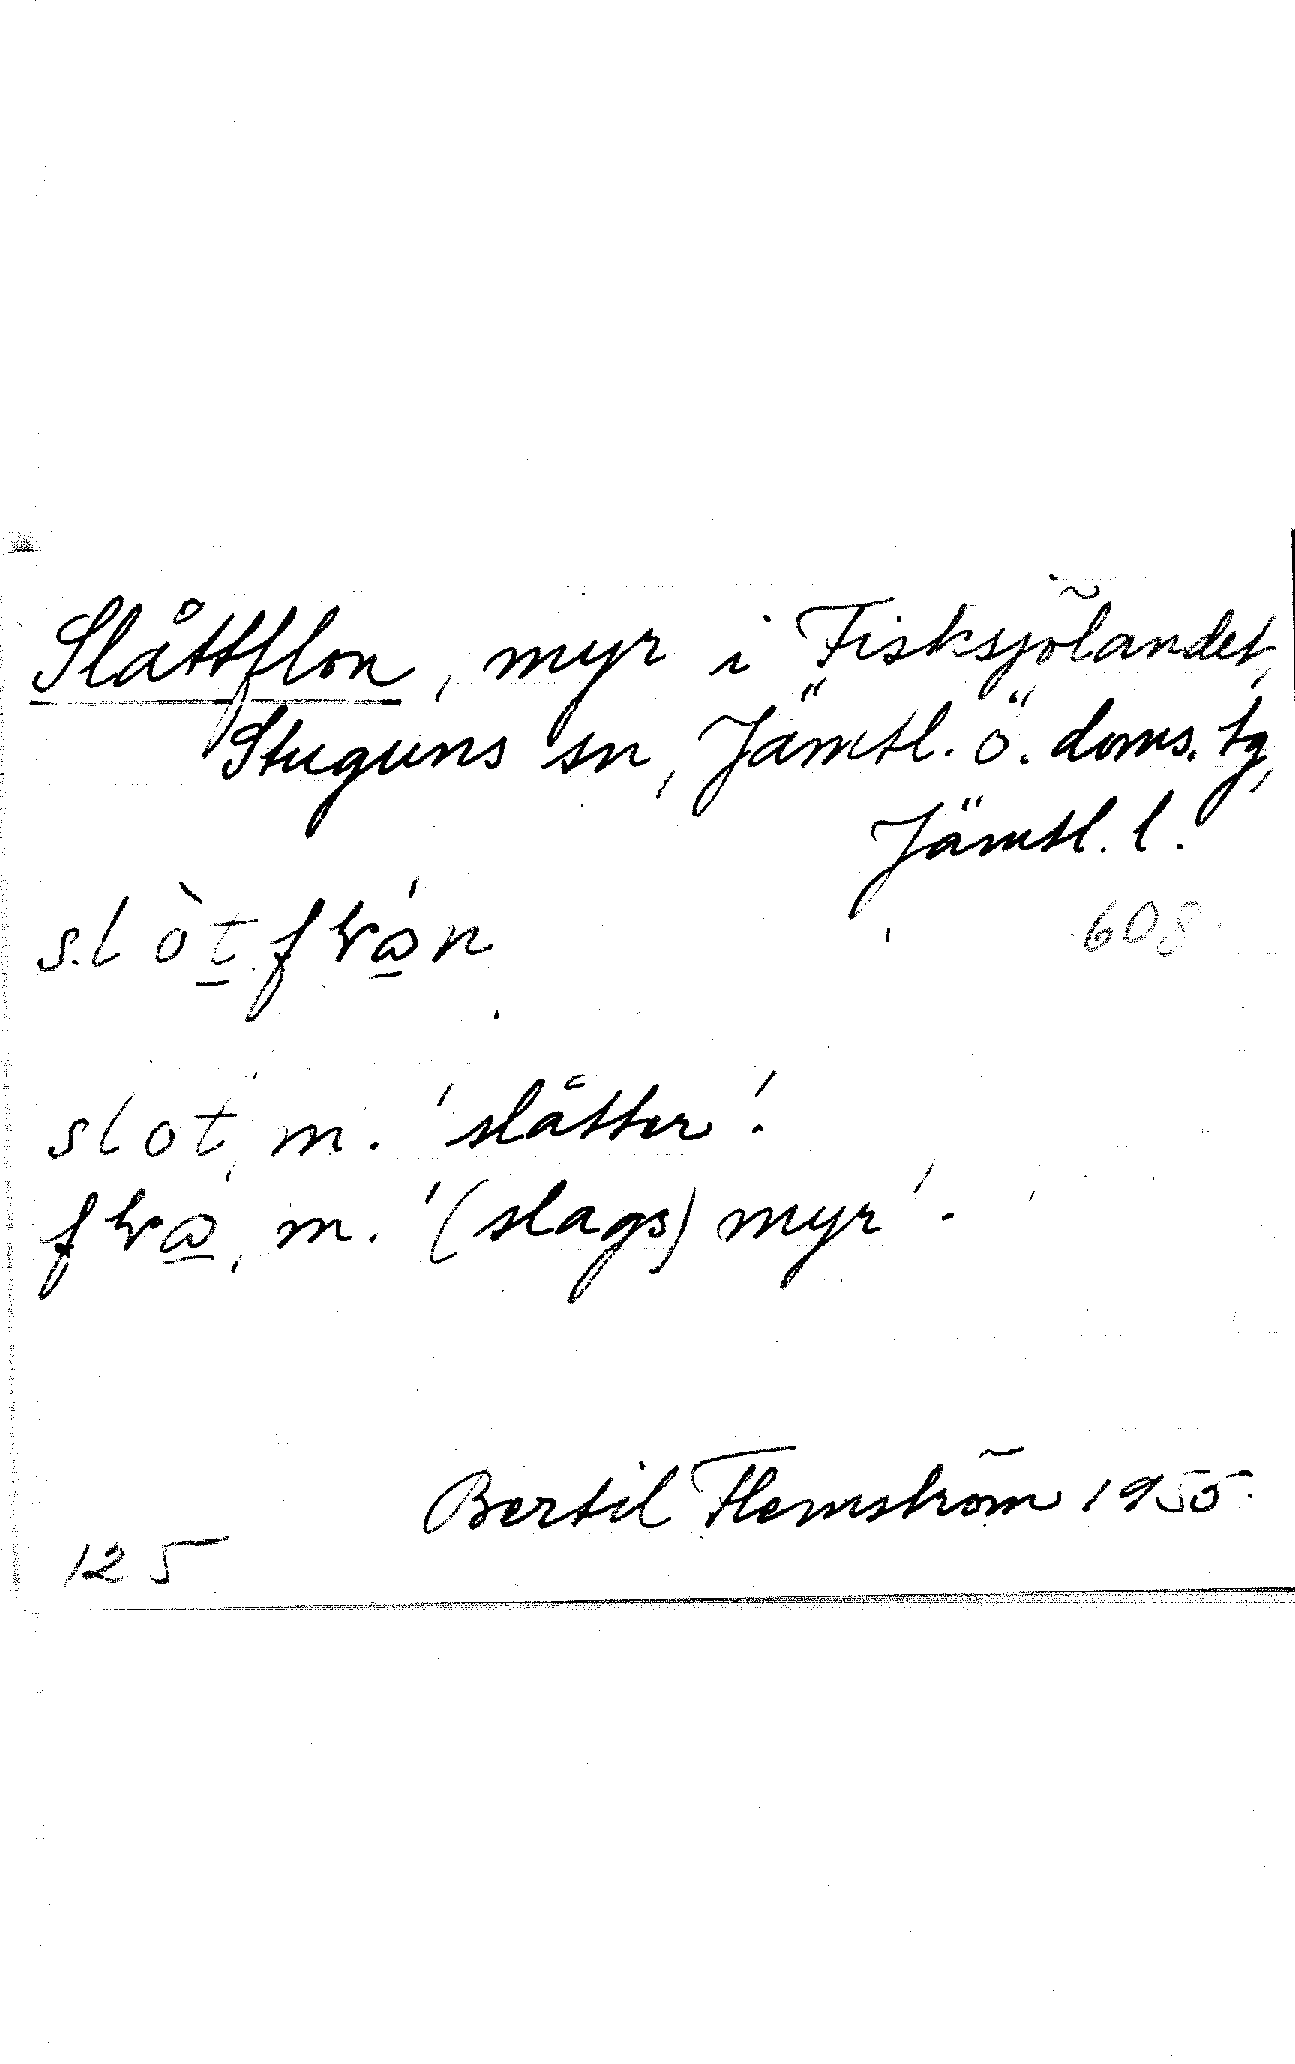 Slåttflon, myr i Fisksjölandet,
Stuguns sn, Jämtl. ö. doms. tg,
Jämtl. l.
608
slot, m. 'slåtter'.
m. '(slags) myr'.
Bertil Flemström 1955.
125